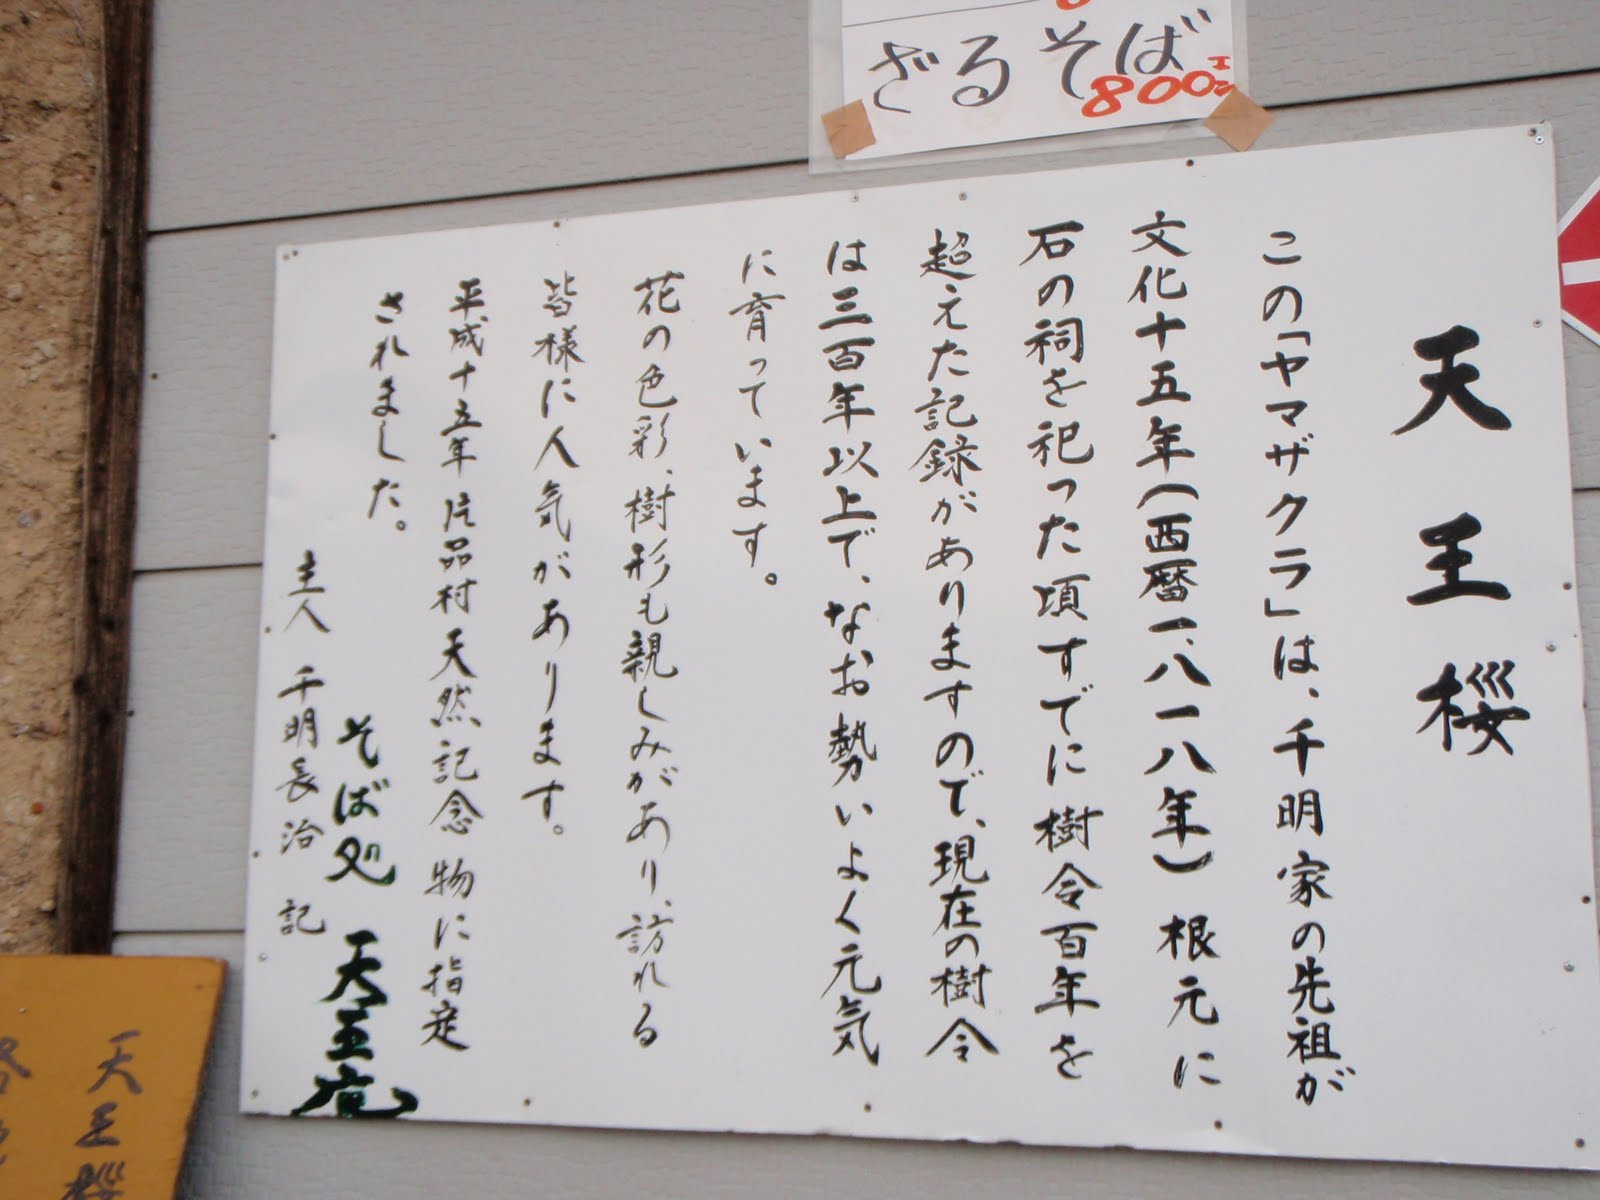 ざるそば
800円
天王桜
この「ヤマザクラ」は、千明家の先祖が
文化十五年(西暦一、八一八年)根元に
石の祠を祀った頃すでに樹令百年を
超えた記録がありますので、現在の樹令
は三百年以上で、なお勢いよく元気
に育っています。
花の色彩、樹形も親しみがあり、訪れる
皆様に人気があります。
平成十五年片品村天然記念物に指定
されました。
そば処 天王庵
主人 千明長治 記
天王桜